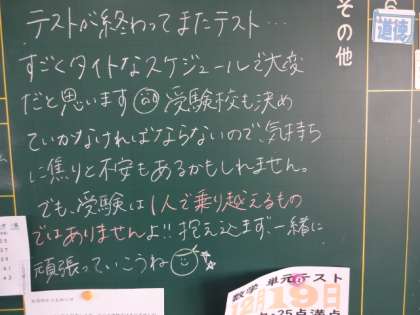 テストが終わってまたテスト…
すごくタイトなスケジュールで大変
だと思います 受験校も決め
ていかなければならないので、気持ち
に焦りと不安もあるかもしれません。
でも、受験は1人で乗り越えるもの
ではありませんよ!! 抱え込まず、一緒に
頑張っていこうね
その他
6
道徳
数学 単元テスト
12月19日
25点満点